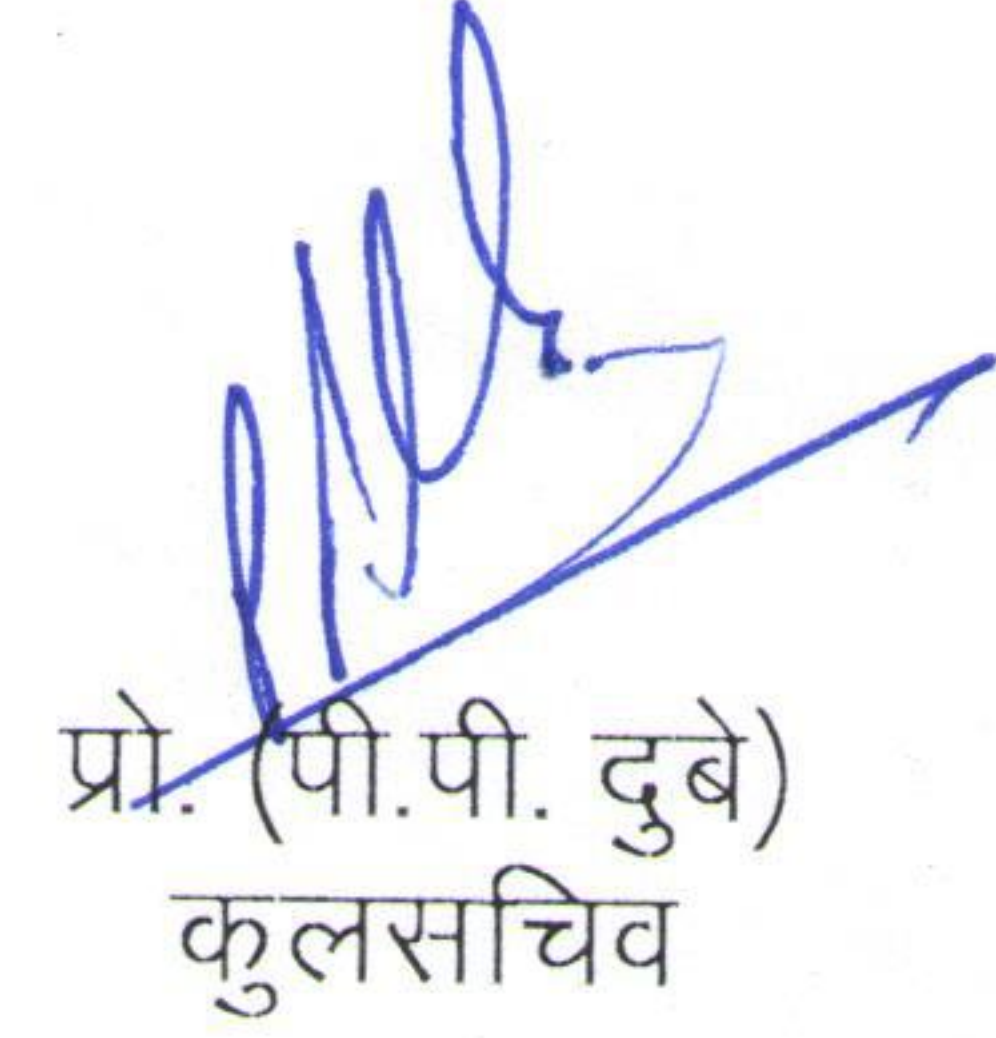 प्रो. (पी.पी. दुबे)
कुलसचिव